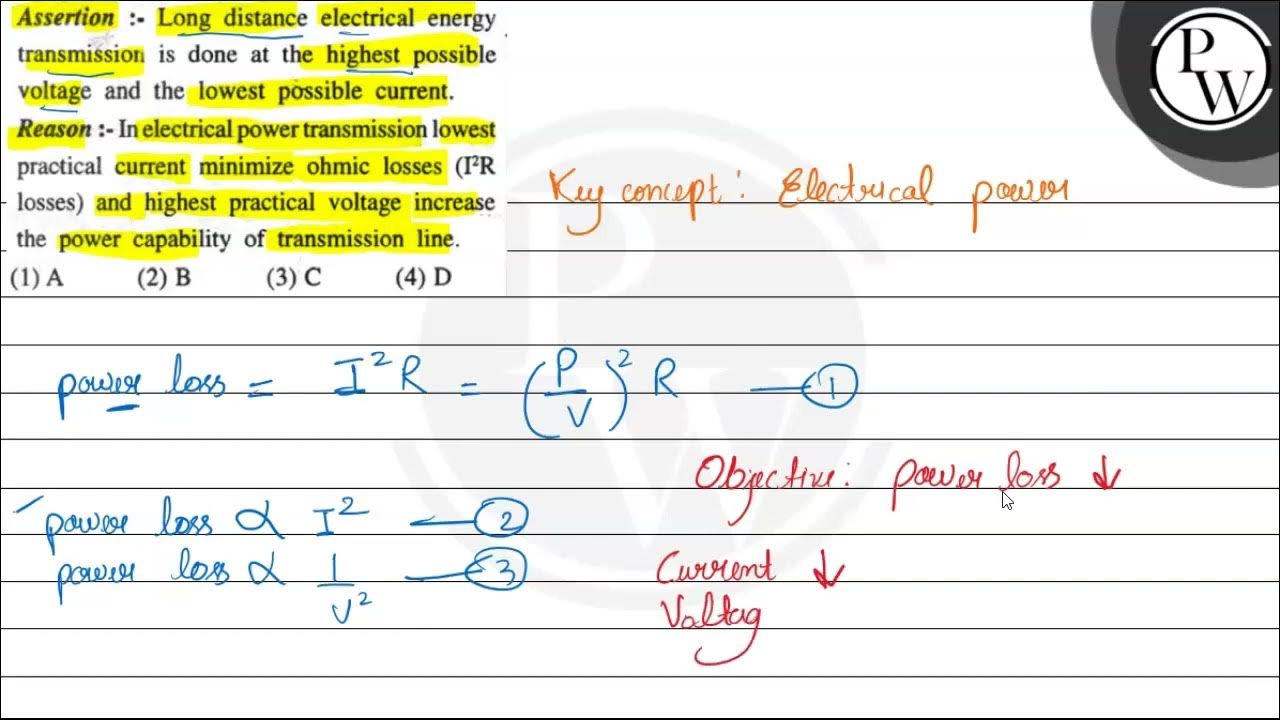 Assertion :- Long distance electrical energy
transmission is done at the highest possible
voltage and the lowest possible current.
Reason :- In electrical power transmission lowest
practical current minimize ohmic losses (I²R
losses) and highest practical voltage increase
the power capability of transmission line.
(1) A (2) B (3) C (4) D
PW
Key concept: Electrical power
power loss = I²R = (P/V)² R — 1
Objective: power loss ↓
power loss ∝ I² ← 2
power loss ∝ 1/V² — 3
Current ↓
Voltag